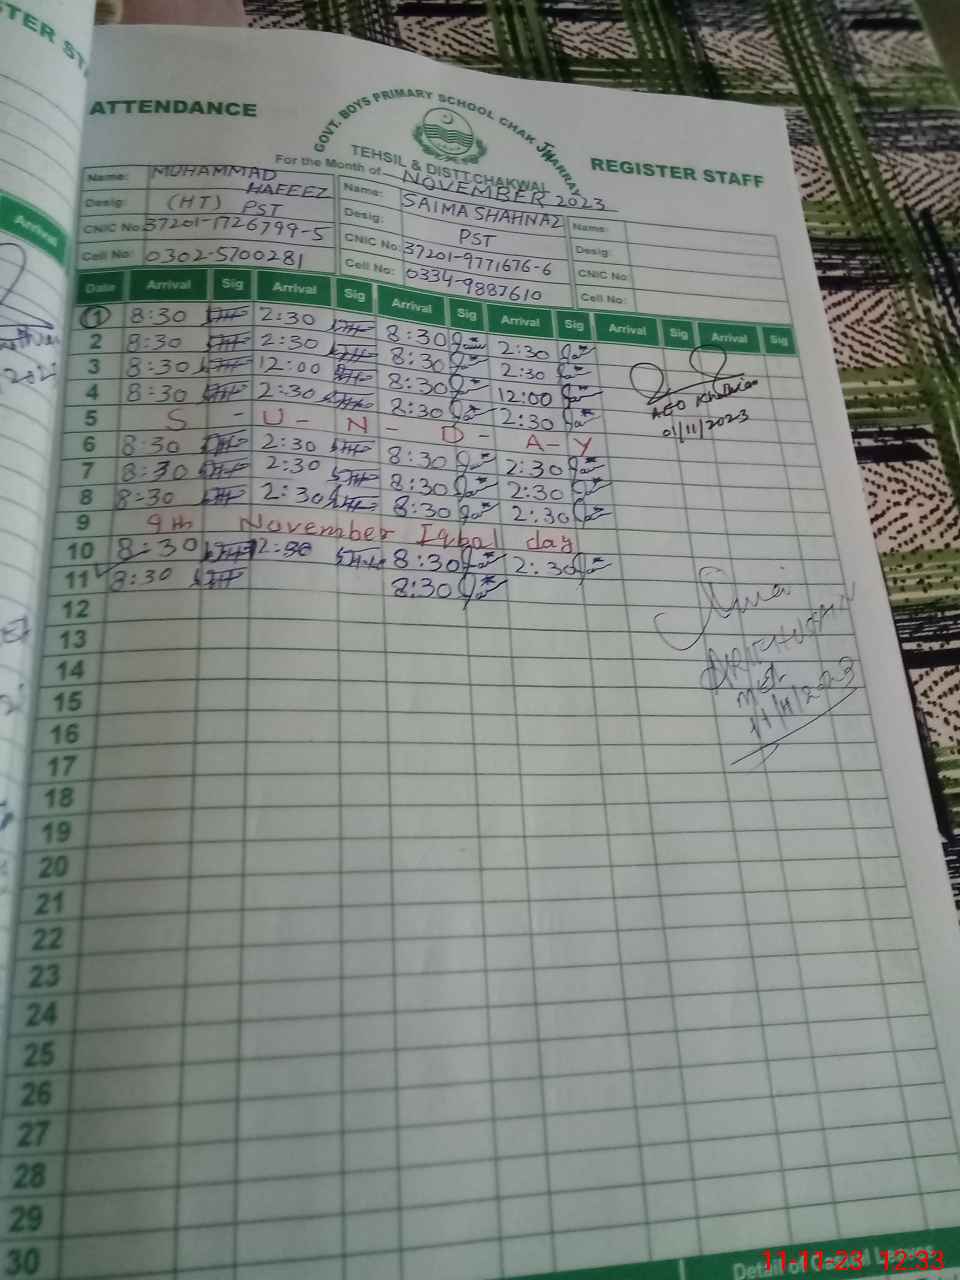 ATTENDANCE
GOVT. BOYS PRIMARY SCHOOL CHAK JHAKRAY
TEHSIL & DISTT.CHAKWAL
REGISTER STAFF
For the Month of NOVEMBER 2023
Name: MUHAMMAD HAFEEZ Name: SAIMA SHAHNAZ Name:
Desig: (HT) PST Desig: PST Desig:
CNIC No: 37201-1726799-5 CNIC No: 37201-9771676-6 CNIC No:
Cell No: 0302-5700281 Cell No: 0334-9887610 Cell No:
Date Arrival Sig Arrival Sig Arrival Sig Arrival Sig Arrival Sig Arrival Sig
1 8:30 2:30 8:30 2:30
2 8:30 2:30 8:30 2:30
3 8:30 12:00 8:30 12:00
4 8:30 2:30 8:30 2:30
AEO
01/11/2023
5 S - U - N - D - A - Y
6 8:30 2:30 8:30 2:30
7 8:30 2:30 8:30 2:30
8 8:30 2:30 8:30 2:30
9 9th November Iqbal day
10 8:30 2:30 8:30 2:30
11 8:30 8:30
12
13
11/11/2023
14
15
16
17
18
19
20
21
22
23
24
25
26
27
28
29
30
Detail of Casual Leaves
11-11-23 12:33